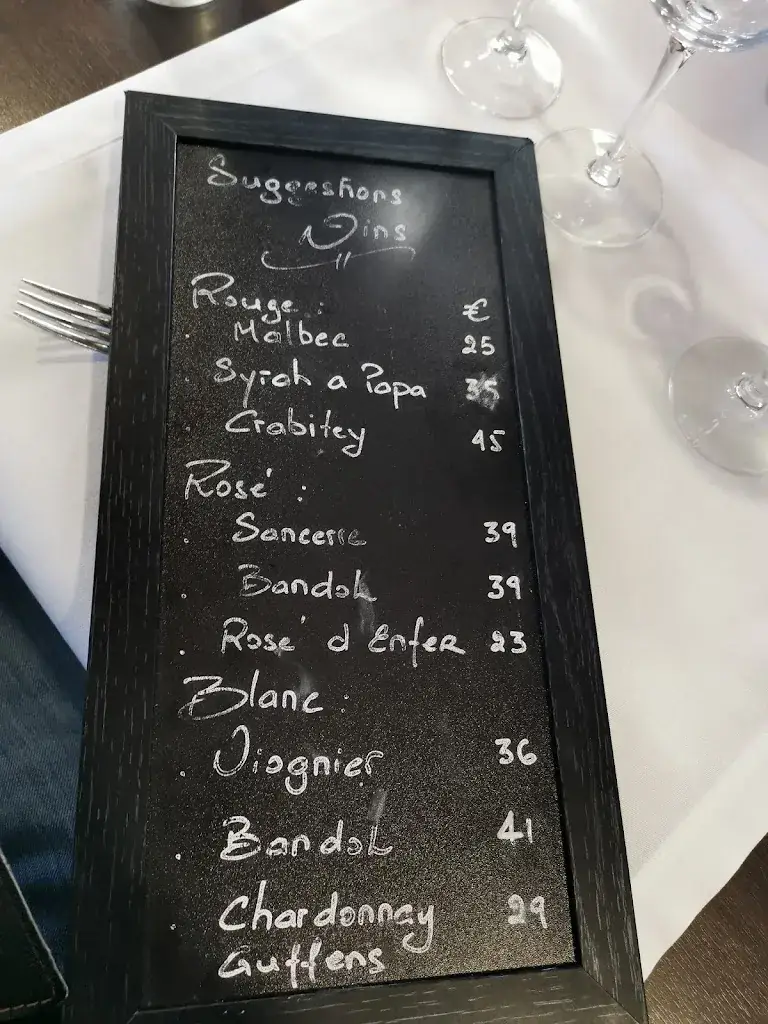 Suggestions
Vins
Rouge : €
. Malbec 25
. Syrah a Papa 35
. Crabitey 45
Rosé :
. Sancerre 39
. Bandol 39
. Rosé d Enfer 23
Blanc :
. Viognier 36
. Bandol 41
. Chardonnay 29
Guffens